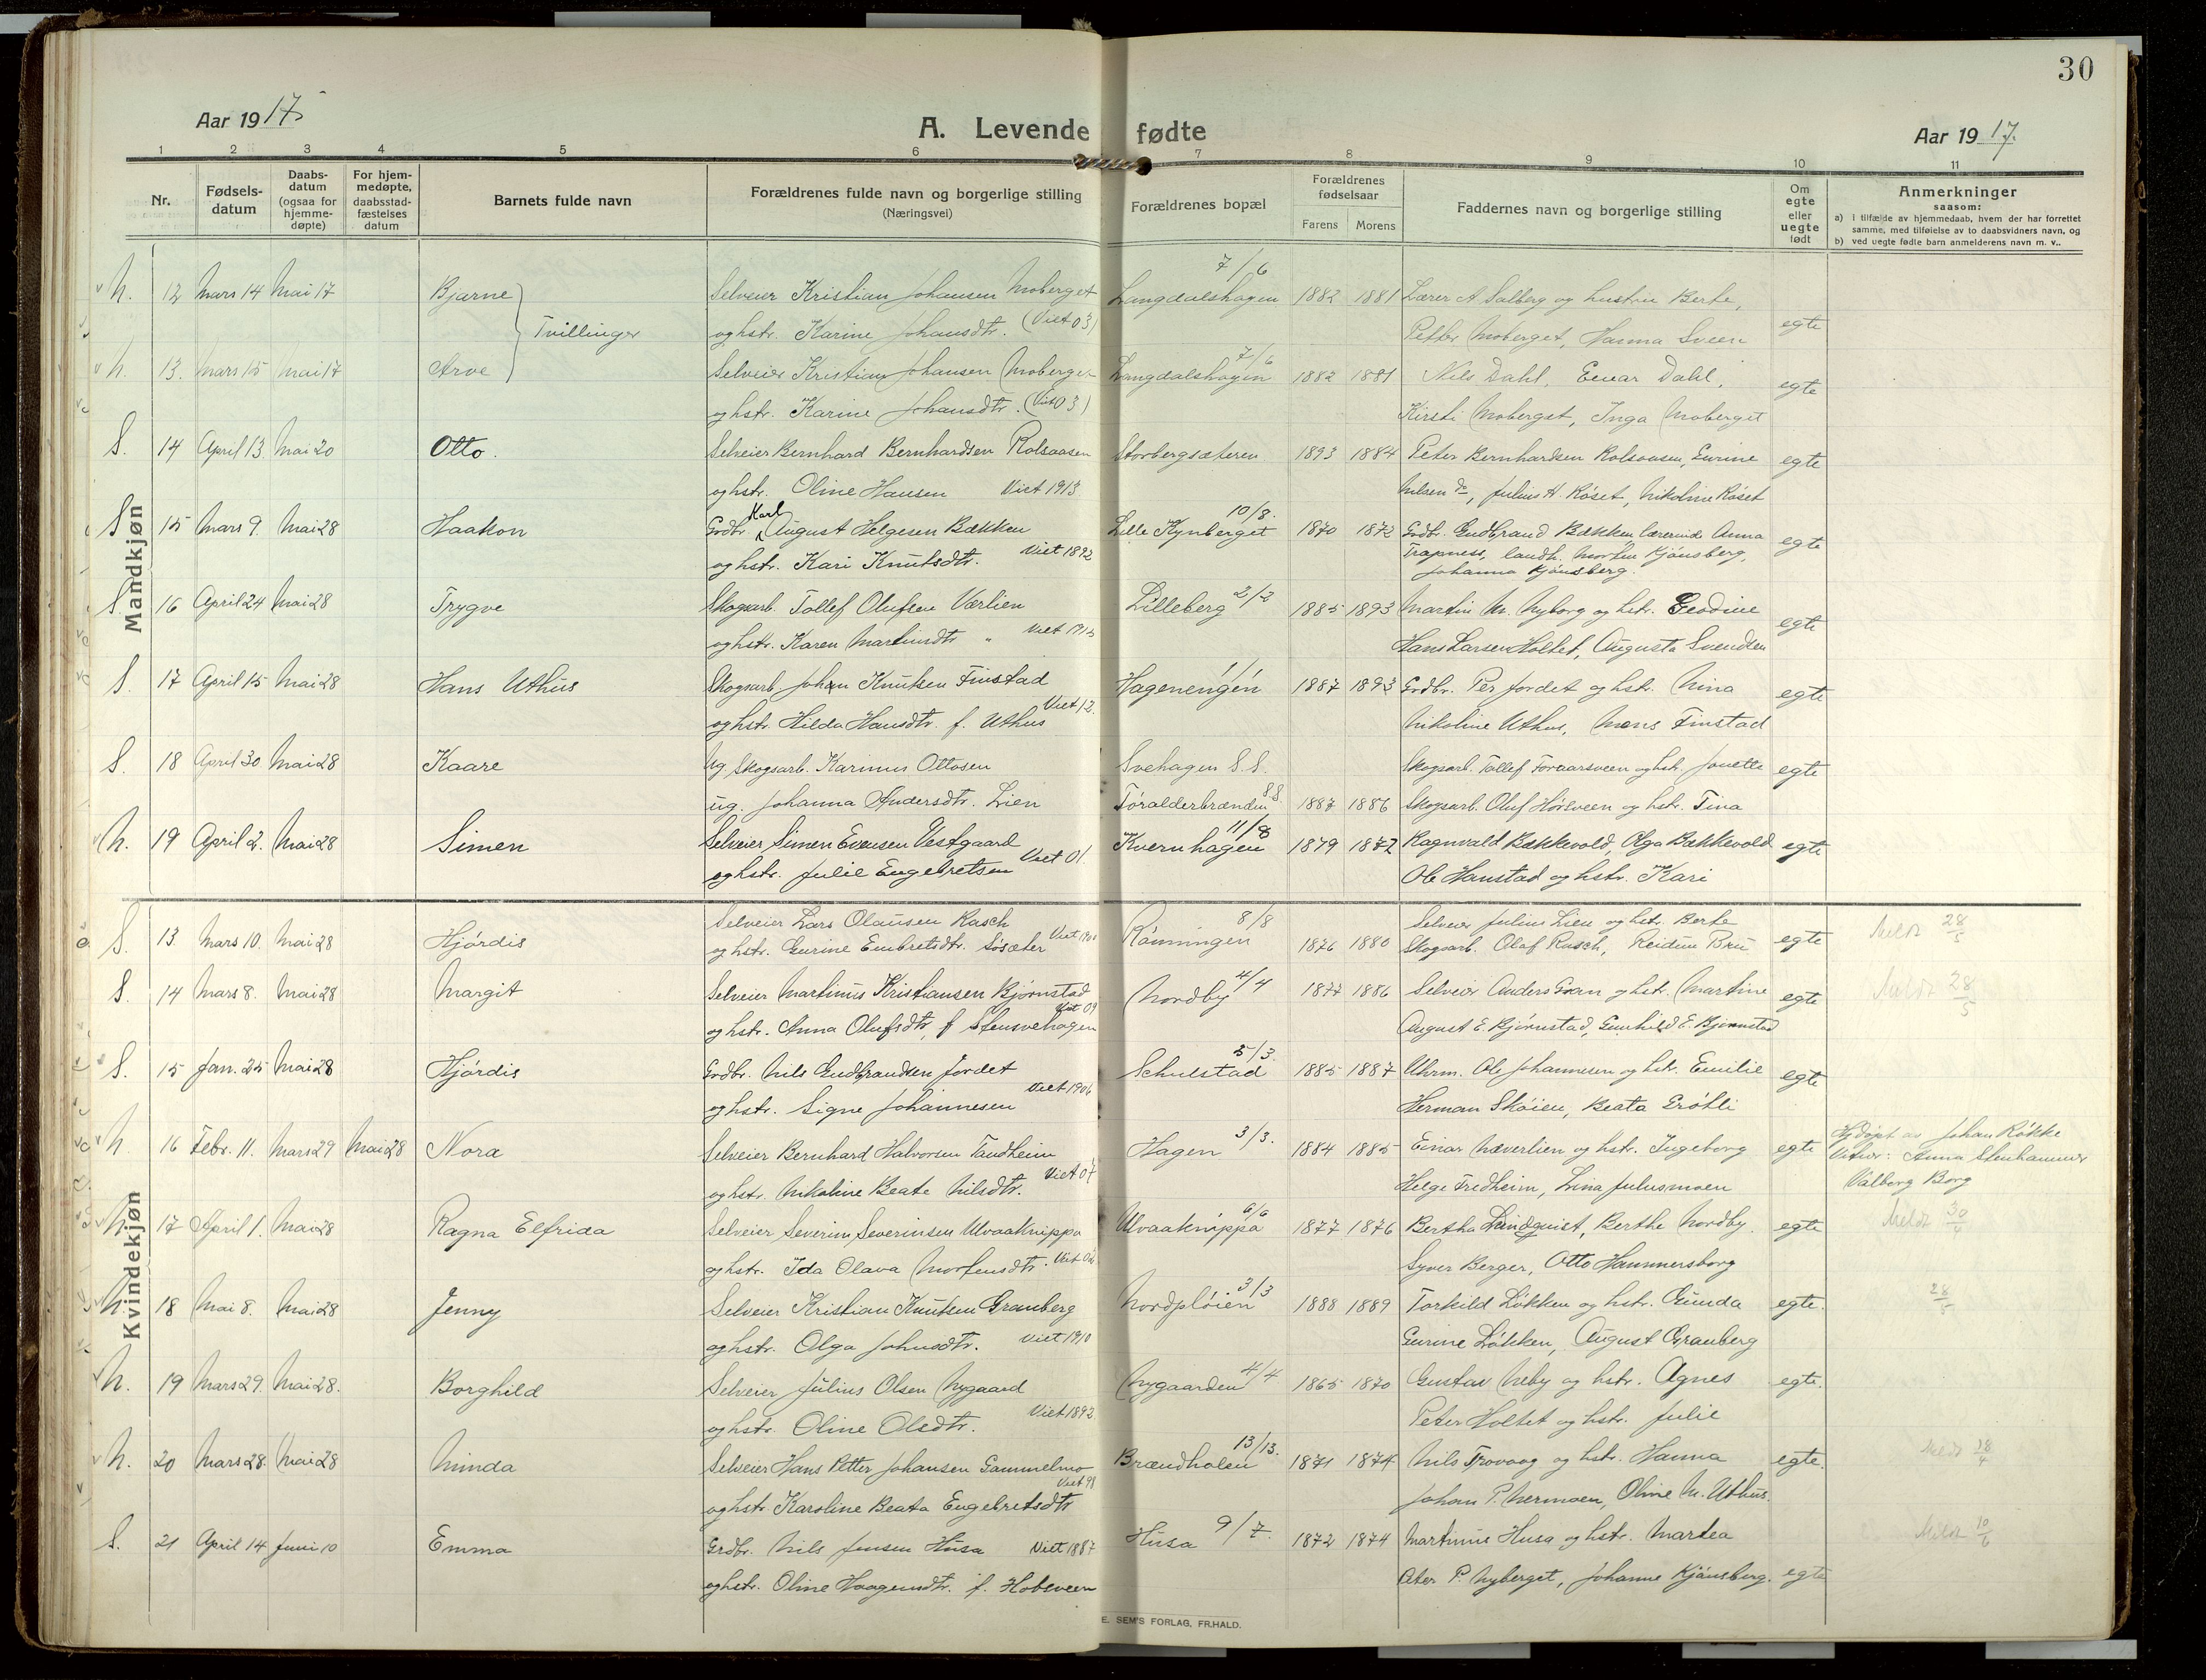 30
Aar 1917
A. Levende fødte
Aar 1917.
1 2 3 4 5 6 7 8 9 10 11
Nr.
Fødselsdatum
Daabsdatum (ogsaa for hjemmedøpte)
For hjemmedøpte, daabsstadfæstelses datum
Barnets fulde navn
Forældrenes fulde navn og borgerlige stilling (Næringsvei)
Forældrenes bopæl
Forældrenes fødselsaar
Farens Morens
Faddernes navn og borgerlige stilling
Om egte eller uegte født
Anmerkninger
saasom:
a) i tilfælde av hjemmedaab, hvem der har forrettet samme, med tilføielse av to daabsvidners navn, og
b) ved uegte fødte barn anmelderens navn m. v..
Mandkjøn
7/6
N. 12 Mars 14 Mai 17 Bjarne Selveier Kristian Johansen Moberget Langdalshagen 1882 1881 Lærer A. Salberg og hustru Berte,
Tvillinger og hstr. Karine Johansdtr. (Viet 03) Petter Moberget, Hanna Sveen egte
7/6
N. 13. Mars 15 Mai 17 Arve Selveier Kristian Johansen Moberget Langdalshagen 1882 1881 Nils Dahl, Einar Dahl,
og hstr. Karine Johansdtr. (Viet 03) Kirsti Moberget, Inga Moberget egte
S. 14 April 13. Mai 20 Otto. Selveier Bernhard Bernhardsen Rolsaasen Storbergsæteren 1893 1884 Peter Bernhardsen Rolsaasen, Eurine egte
og hstr. Oline Hansen Viet 1913 Nilsen do, Julius H. Røset, Nikoline Røset
10/8.
S 15 Mars 9. Mai 28 Haakon Grdbr. Karl August Helgesen Bækken Lille Kynberget 1870 1872 Grdbr. Gudbrand Bækken, lærerinde Anna egte
og hstr. Kari Knutsdtr. Viet 1892 Trapness, landh. Morten Kjønsberg,
Johanna Kjønsberg.
S. 16 April 24 Mai 28 Trygve Skogsarb. Tollef Olufsen Værlien Lilleberg 2/2 1885 1893 Martin M. Nyborg og hstr. Geodine
og hstr. Karen Martinsdtr " Viet 1915 Hans Larsen Holtet, Augusta Svendsen egte
1/1
S. 17 April 15 Mai 28 Hans Uthus Skogsarb. Johan Knutsen Finstad Hagenengen 1887 1893 Grdbr. Per Jordet og hstr. Nina egte
og hstr. Hilda Hansdtr. f. Uthus Viet 12. Nikoline Uthus, Mons Finstad
S. 18 April 30. Mai 28 Kaare Ug. Skogsarb. Karinus Ottosen Svehagen S.S. Skogsarb. Tollef Foraarsveen og hstr. Jonette egte
ug. Johanna Andersdtr. Lien Tøralderbrænden S.S. 1887 1886 Skogsarb. Oluf Hørsveen og hstr. Tina
11/8
N. 19 April 2. Mai 28 Simen Selveier Simen Evensen Vestgaard Kvernhagen 1879 1872 Ragnvald Bækkevold, Olga Bækkevold egte
og hstr. Julie Engebretsen Viet 01. Ole Hanstad og hstr. Kari
Kvindekjøn
S. 13 Mars 10. Mai 28 Hjørdis Selveier Lars Olausen Rasch Rønningen 8/8 1876 1880 Selveier Julius Lien og hstr. Berte egte Meldt 28/5
og hstr. Gurine Embretsdtr. Søsæter Skogsarb. Olaf Rasch, Reidun Bru
S. 14 Mars 8. Mai 28 Margit Selveier Martinus Kristiansen Bjørnstad Nordby 4/4 1877 1886 Selveier Anders Gran og hstr. Martine egte Meldt 28/5
og hstr. Anna Olufsdtr. f Stensvehagen Viet 09 August E. Bjørnstad, Gunhild E. Bjørnstad
5/3.
S. 15 Jan. 25 Mai 28 Hjørdis Grdbr. Nils Gudbrandsen Jordet Schulstad 1885 1887 Uhrm. Ole Johannesen og hstr. Emilie egte
og hstr. Signe Johannesen Viet 1906 Herman Skøien, Beata Grøtli
N. 16 Febr. 11. Mars 29 Mai 28 Nora Selveier Bernhard Halvorsen Tandheim Hagen 3/3. 1884 1885 Einar Næverlien og hstr. Ingeborg egte Hjdøpt av Johan Røkke
og hstr. Nikoline Beate Nilsdtr. Viet 07 Helge Fredheim, Lina Julusmoen Vitner: Anna Stenhammer
Valborg Borg
6/6
N. 17 April 1. Mai 28 Ragna Elfrida Selveier Severin Severinsen Ulvaaknippa Ulvaaknippa 1877 1876 Bertha Lindquist, Berthe Nordby. egte Meldt 30/4
og hstr. Ida Olava Mortensdtr. Syver Berger, Otto Hammersborg
3/3
N. 18 Mai 8. Mai 28 Jenny Selveier Kristian Knutsen Granberg Nordpløien 1888 1889 Torkild Løkken og hstr. Gunda egte. 28/5
og hstr. Olga Johnsdtr. Viet 1910 Gurine Løkken, August Granberg
N. 19 Mars 29. Mai 28. Borghild Selveier Julius Olsen Nygaard Nygaarden 4/4 1865 1870 Gustav Neby og hstr. Agnes egte.
og hstr. Oline Olsdtr. Viet 1892 Peter Holtet og hstr. Julie
13/13.
N. 20 Mars 28. Mai 28 Minda Selveier Hans Petter Johansen Gammelmo Brændholen 1871 1874 Nils Trovaag og hstr. Hanna egte. Meldt 28/4
og hstr. Karoline Beata Engebretsdtr Viet 98 Johan P. Nermoen, Oline M. Uthus.
S. 21 April 14 Juni 10 Emma Grdbr. Nils Jensen Husa Viet 1887 Husa 9/7. 1872 1874 Martinus Husa og hstr. Martea Meldt 10/6
og hstr. Oline Haagensdtr. f. Hobsveen Peter P. Nyberget, Johanne Kjønsberg. egte
E. SEM'S FORLAG, FR.HALD.